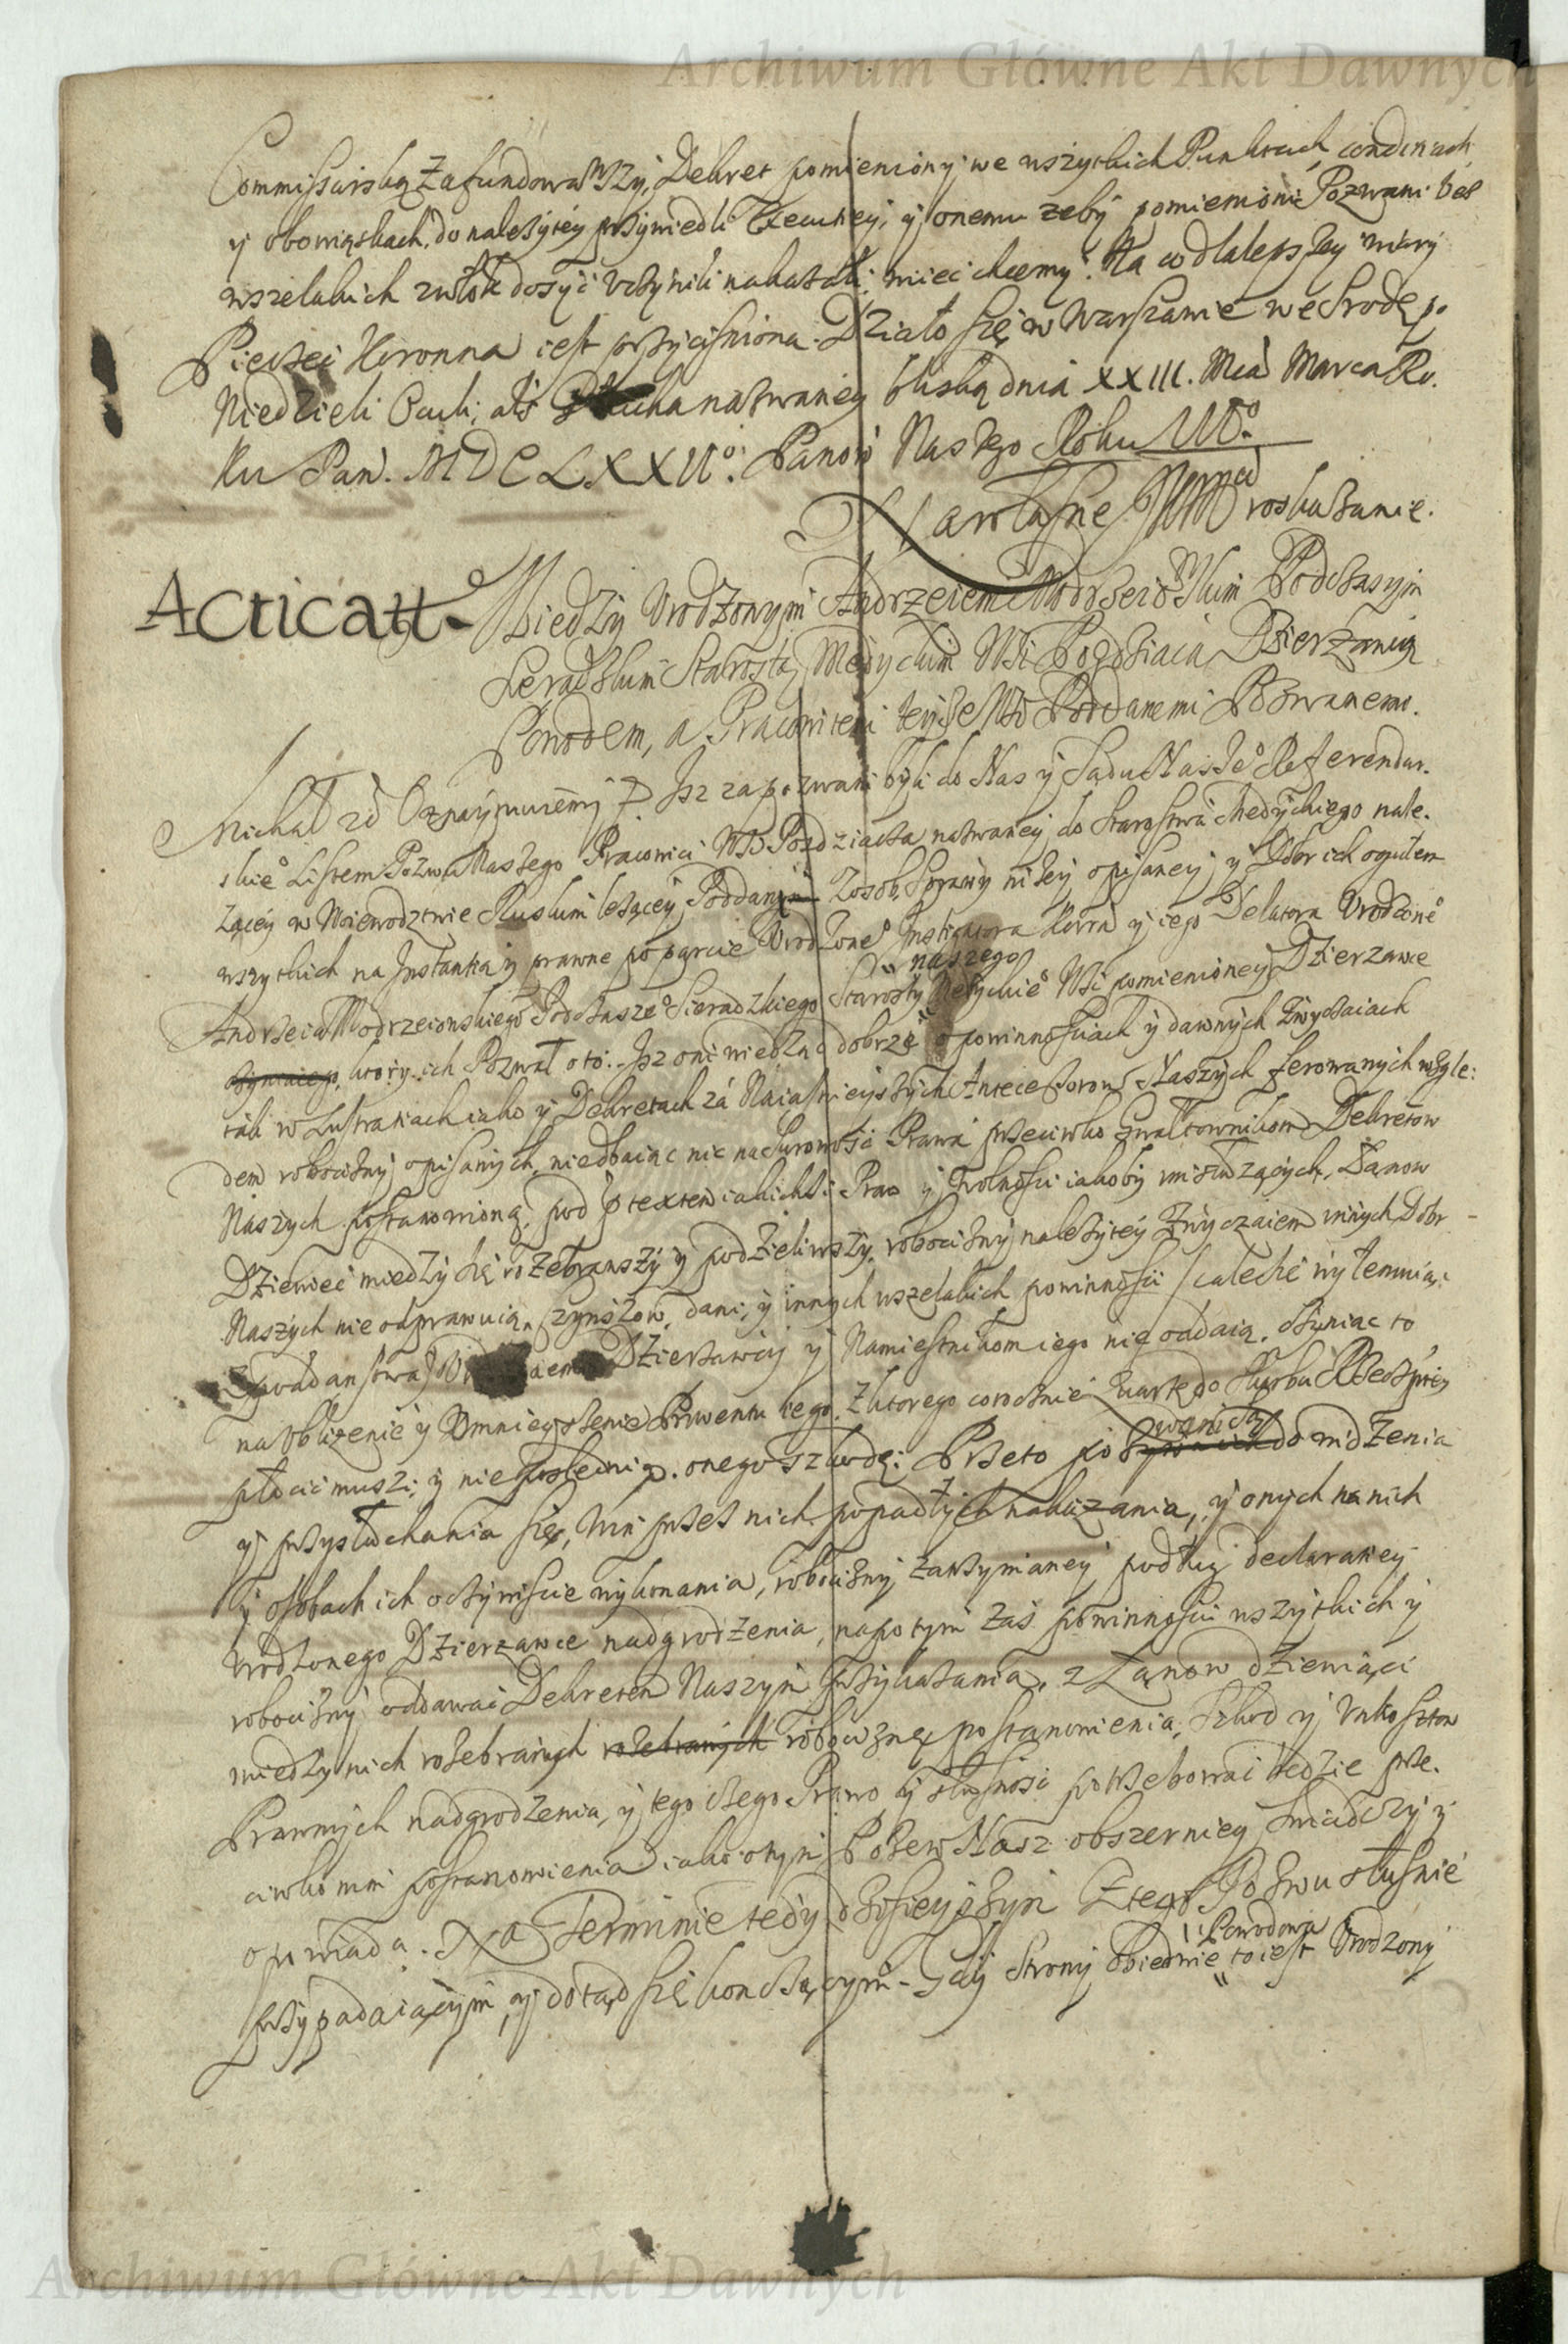 Archiwum Główne Akt Dawnych
Commissarską Zafundowawszy, Dekret pomieniony we wszytkich Punktach, condictiach
y obowiąskach, do należytey przywiedli Exekucyi, y onemu zeby pomienieni Pozwani bes
wszelakich zwłok dosyć vczynili nakazali, mieć chcemy. Na co dla lepszey wiary
Pieczęć Koronna iest przyciśniona. Działo się w Warszawie we Srodę po
Niedzieli Oculi, als Głucha nazwaney bliską dnia XXIII. Mca Marca Ro.
ku Pan. MDCLXXIIo. Panow Naszego Roku IIIo.
Na własne JKMci roskazanie.
Acticatt. Miedzy Vrodzonym Andrzeiem Modrzeiowskim Podczaszym
Seradzkim Starostą Medyckim Wsi Pozdziacza Dzierzawcą
Powodem, a Pracowitemi teyże Wsi Poddanemi Pozwanemi.
Michał zd Oznaymuiemy Jsz zapozwani byli do Nas y Sądu Naszeo Referendar.
skieo Listem Pozwu Naszego Pracowici Wsi Pozdziacza nazwaney do Starostwa Medyckiego nale.
zącey w Woiewodztwie Ruskim leżącey Poddani Zosob, Sprawy niżey opisaney y Dobr ich ogułem
wszytkich na Instantią y prawne poparcie Vrodzoneo Instigatora Korrn y iego Delatora Vrodzoneo
naszego
Andrzeia Modrzeionskiego Podczaszeo Sieradzkiego Starosty Medyckieo Wsi pomienioney Dzierzawce
ktory ich Pozwał oto: Jsz oni wiedząc dobrze o powinnosciach y dawnych zwyczaiach
tak w Lustratiach iako y Dekretach zá Naiasnieyszych Antecessorow Naszych ferowanych wzgle:
dem robocizny opisanych, niedbaiąc nic na surowość Prawa przeciwko gwałtownikom Dekretow
Naszych postanowioną, pod prætextem iakichsi Praw y wolności iakoby im służących, Łanow
Dziewieć miedzy się rozebrawszy y podzieliwszy, robocizny należytey zwyczaiem innych Dobr
Naszych nie odprawuią, czynszow, dani, y innych wszelakich powinności całecki wyłamuiąc
z poddanstwa Dzierzawcy y Namiestnikom iego nie oddaią. czyniąc to
na vbliżenie y Vmnieyszenie Prowentu iego, z ktorego corocznie kwartę do Skarbu Rzeczptey
płacić musi, y nie poslednią onego szkodę: Przeto pozwanich do widzenia
y przysłuchania się, win przez nich popadłych nakazania, y onych na nich
y osobach ich oczywiscie wykonania, robocizny zatrzymaney podług declaratiey
Vrodzonego Dzierzawce nadgrodzenia, napotym zaś powinności wszytkich y
robocizny oddawać Dekretem Naszym przykazania, z Łanow dziewiąci
miedzy nich rozebranych rozebranych robociznę postanowienia, Szkod y Vnkosztow
Prawnych nadgrodzenia, y tego czego Prawo y słuszność potrzebować bedzie prze.
ciwko nim postanowienia iako otym Pozew Nasz obszerniey swiadczy y
opowiada. Na Terminie tedy dzisieyszym Ztego Pozwu słusznie
przypadaiącym, y dotąd się konczącym. Gdy Strony obiedwie to iest Powodowa Vrodzony
Archiwum Główne Akt Dawnych